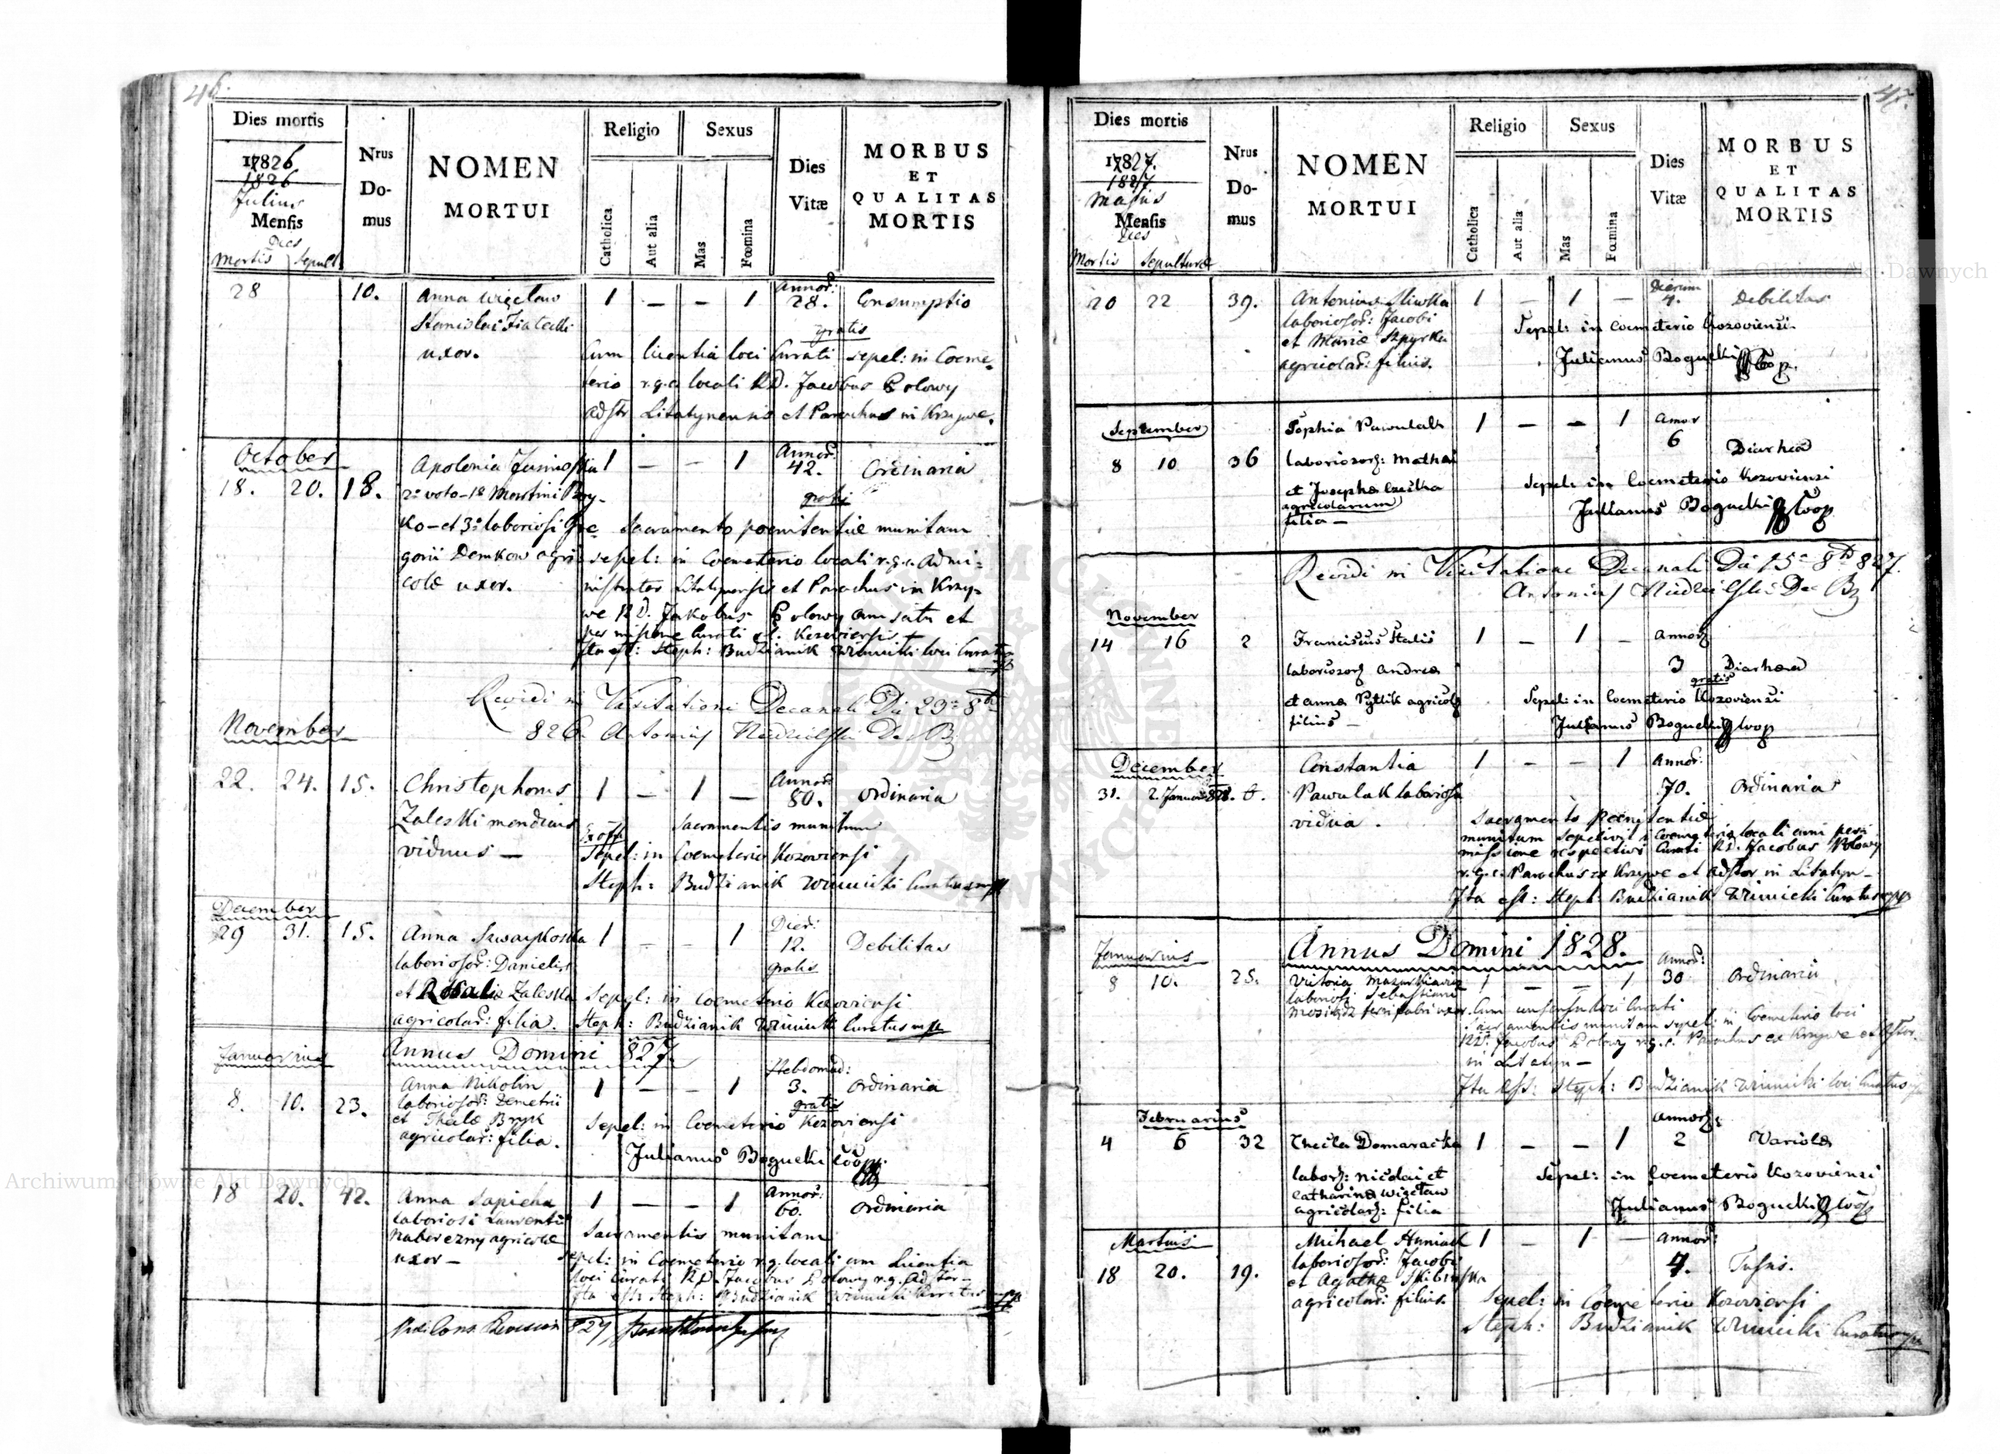 46.
Dies mortis
Nrus Domus
NOMEN MORTUI
Religio
Sexus
Dies Vitæ
MORBUS ET QUALITAS MORTIS
1826
1826
Julius
Mensis
Dies
Mortis Sepult
Catholica
Aut alia
Mas
Fœmina
28 10. Anna Wigclaw 1 — — 1 Annor. 28. Consumptio
Stanislai
uxor.
gratis
Cum licentia loci Curati sepel: in Coeme-
terio r.g.c. locali R.D. Jacobus Polowy
adstr Litatynensis et Parochus in Krzywe.
October
18. 20. 18. Apolonia 1 — — 1 Annor. 42. Ordinaria
2o voto - 1o Martini
ko - et 3o laboriosi Gre-
gorii Demkow agri-
colæ uxor.
gratis
Sacramento poenitentiæ munitam
sepel: in Coemeterio locali r.g.c. Admi-
nistrator Litatynensis et Parochus in Krzy-
we R.D. Jakobus Polowy
permissione Curati r.l. Kozoviensis
Ita est: Steph: Budzianik Winnicki loci Curatus
Revidi in Visitatione Decanali Die 29a 8bris
826. Antonius
November
22. 24. 15. Christophorus 1 — 1 — Annor. 80. Ordinaria
Zaleski mendicus
viduus —
Sacramentis munitum
Sepel: in Coemeterio Kozoviensi
Steph: Budzianik Winnicki Curatus mp
December
29 31. 15. Anna 1 — — 1 Dier: 12. Debilitas
laboriosor: Danielis
et Rosaliæ Zaleska
agricolar: filia.
gratis
Sepel: in Coemeterio Kozoviensi
Steph: Budzianik Winnicki Curatus mp
Annus Domini 827.
Januarius
8. 10. 23. Anna Nikolin 1 — — 1 Hebdomad: 3. Ordinaria
laboriosor: Demetrii
et Theclæ Bryk
agricolar: filia.
gratis
Sepel: in Coemeterio Kozoviensi
Julianus Bogucki Coop.
18 20. 42. Anna Sapieha 1 — — 1 Annor: 60. Ordinaria
laboriosi Laurentii
Naberezny agricolæ
uxor —
Sacramentis munitam
sepel: in Coemeterio r.g. locali cum licentia
loci Curati R.D. Jacobus Polowy r.g. Adstor -
Ita est Steph: Budzianik Winnicki Curatus
827
47.
Dies mortis
Nrus Domus
NOMEN MORTUI
Religio
Sexus
Dies Vitæ
MORBUS ET QUALITAS MORTIS
1827.
1827.
Majus
Mensis
Dies
Mortis Sepulturæ
Catholica
Aut alia
Mas
Fœmina
20 22 39. Antonius Sliwka 1 — 1 — Dierum 4. Debilitas
laboriosor: Jacobi
et Mariæ Szpyrka
agricolar: filius.
Sepel: in Coemeterio Kozoviensi
Julianus Bogucki Coop.
September
8 10 36 Sophia Pawulak 1 — — 1 Annor 6 Diarhea
laboriosor: Mathæi
et Josepha
agricolarum
filia —
Sepel: in Coemeterio Kozoviensi
Julianus Bogucki Coop
Revidi in Visitatione Decanali Die 15a 8bris 827.
Antonius
November
14 16 2 Franciscus 1 — 1 — Annor 3 Diarhea
laboriosor Andreæ
et Anna Pytlik agricolar
filius —
gratis
Sepel: in Coemeterio Kozoviensi
Julianus Bogucki Coop
December
31. 2. Januarii 828. 6. Constantia 1 — — 1 Annor: 70. Ordinaria
Pawulak laboriosa
vidua.
Sacramento Poenitentiæ
munitam sepelivit in Coemeterio locali cum per-
missione respectivi Curati R.D. Jacobus Polowy
r.g.c. Parochus ex Krzywe et Adstor in Litatyn -
Ita est: Steph: Budzianik Winnicki Curatus mp
Annus Domini 1828.
Januarius
8 10. 25. Victoria 1 — — 1 Annor: 30 Ordinaria
laboriosi Sebastiani
Cum consensu loci Curati
Sacramentis munitam sepeli: in Coemeterio loci
R.D. Jacobus Polowy r.g.c. Parochus ex Krzywe et Adstor.
in Litatyn —
Ita est: Steph: Budzianik Winnicki loci Curatus mp
Februarius
4 6 32 Thecla Domaracka 1 — — 1 Annor: 2 Variola
labor: Nicolai et
Catharina Wigclaw
agricolar: filia
Sepel: in Coemeterio Kozoviensi
Julianus Bogucki Coop
Martius
18 20. 19. Mihael 1 — 1 — Annor: 4. Tusis.
laboriosor: Jacobi
et Agathæ Skibinska
agricolar: filius.
Sepel: in Coemeterio Kozoviensi
Steph: Budzianik Winnicki Curatus mp
Archiwum Główne Akt Dawnych
Archiwum Główne Akt Dawnych